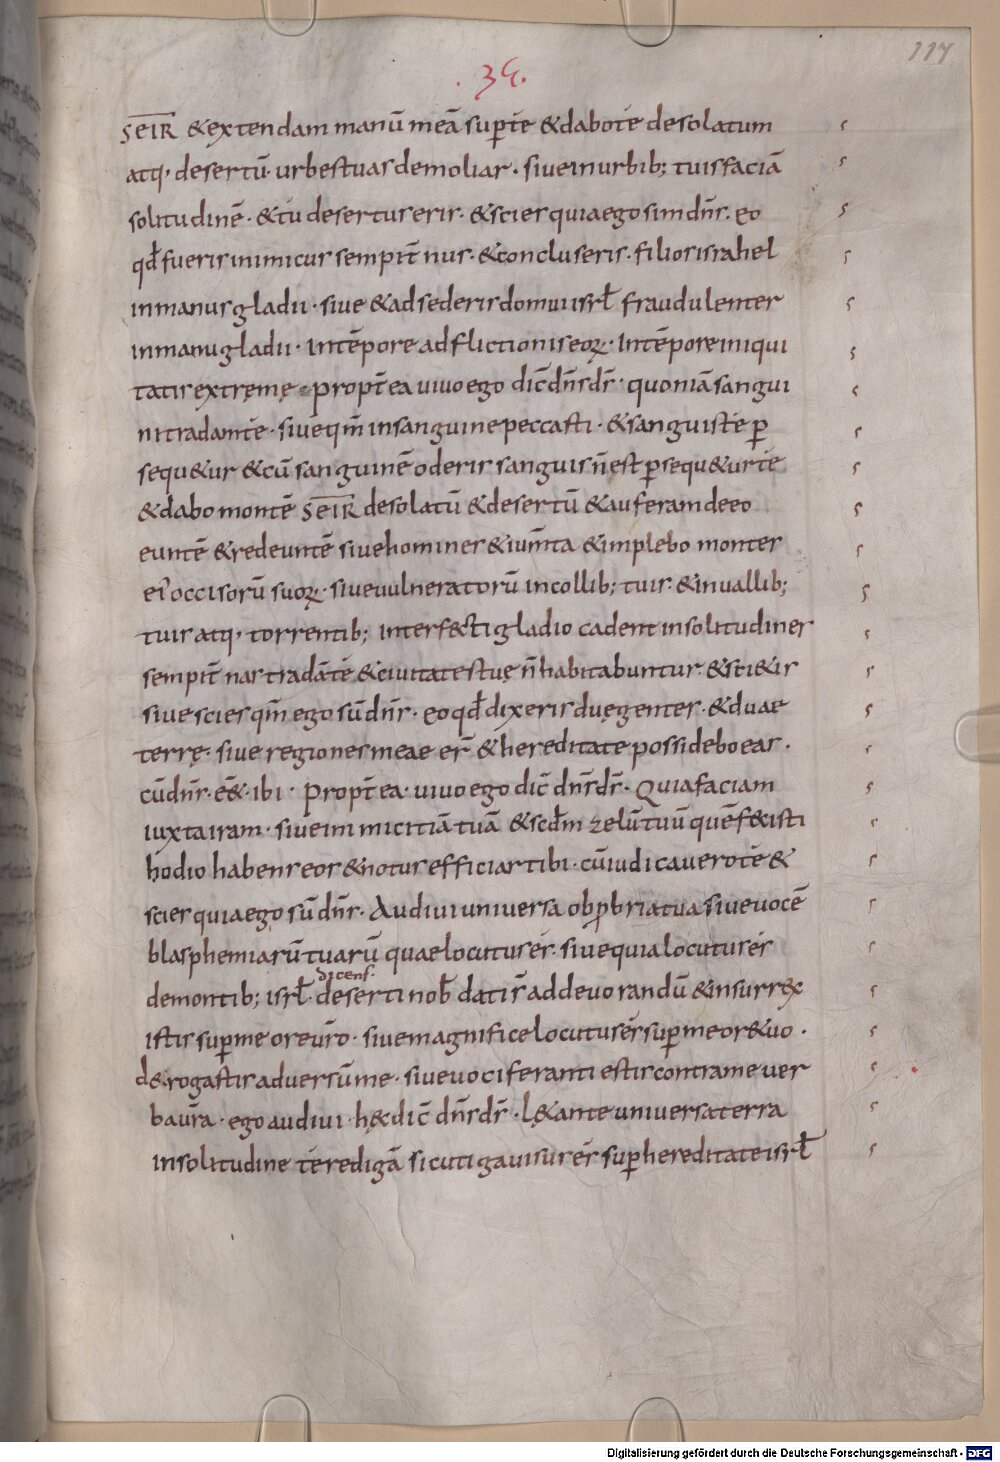 117
·35·
SEIR &extendam manū meā sup te &dabo te desolatum
atq· desertū· urbes tuas demoliar· sive in urbib; tuis faciā
solitudinē· &tu desertus eris· &scies quia ego sum dn̄s· eo
qđ fueris inimicus sempit̄nus· &concluseris· filios israhel
in manus gladii· sive &adsederis domui isrł fraudulenter
in manu gladii· in tēpore adflictionis eoꝝ· in tēpore iniqui
tatis extremę· propt̄ea vivo ego dic̄ dn̄s ds̄· quoniā sangui
ni tradam te· sive qm̄ in sanguine peccasti· &sanguis te ꝑ
sequ&ur &cū sanguinē oderis sanguis n̄ est ꝑsequ&ur te
&dabo montē SEIR desolatū &desertū &auferam de eo
euntē &redeuntē sive homines &ium̄ta &implebo montes
ei' occisorū suoꝝ· sive vulneratorū in collib; tuis· &in vallib;
tuis atq· torrentib; interfecti gladio cadent in solitudines
sempit̄nas tradā te &civitates tuę n̄ habitabuntur· &sci&is
sive scies qm̄ ego sū dn̄s· eo qđ dixeris duę gentes· &duae
terrę· sive regiones meae er̄ &hereditate possidebo eas·
cū dn̄s· ēē&· ibi· propt̄ea· vivo ego dic̄ dn̄s ds̄· Quia faciam
iuxta iram· sive inimicitiā tuā &scđm zelū tuū quē fecisti
hodio habens eos &notus efficiar tibi· cū iudicavero te &
scies quia ego sū dn̄s· Audivi universa obꝓbria tua sive vocē
blasphemiarū tuarū quae locutus es· sive quia locutus es
dicens·
de montib; isrł· deserti nob̄ dati s̄ ad devorandū &insurrex
istis suꝑ me ore vr̄o· sive magnifice locutus es suꝑ me ore vo·
derogastis adversū me· sive vociferanti estis contra me ver
ba vr̄a· ego audivi· hęc dic̄ dn̄s ds̄· lętante universa terra
in solitudine te redigā sicuti gavisus es suꝑ hereditate isrł
Digitalisierung gefördert durch die Deutsche Forschungsgemeinschaft - DFG